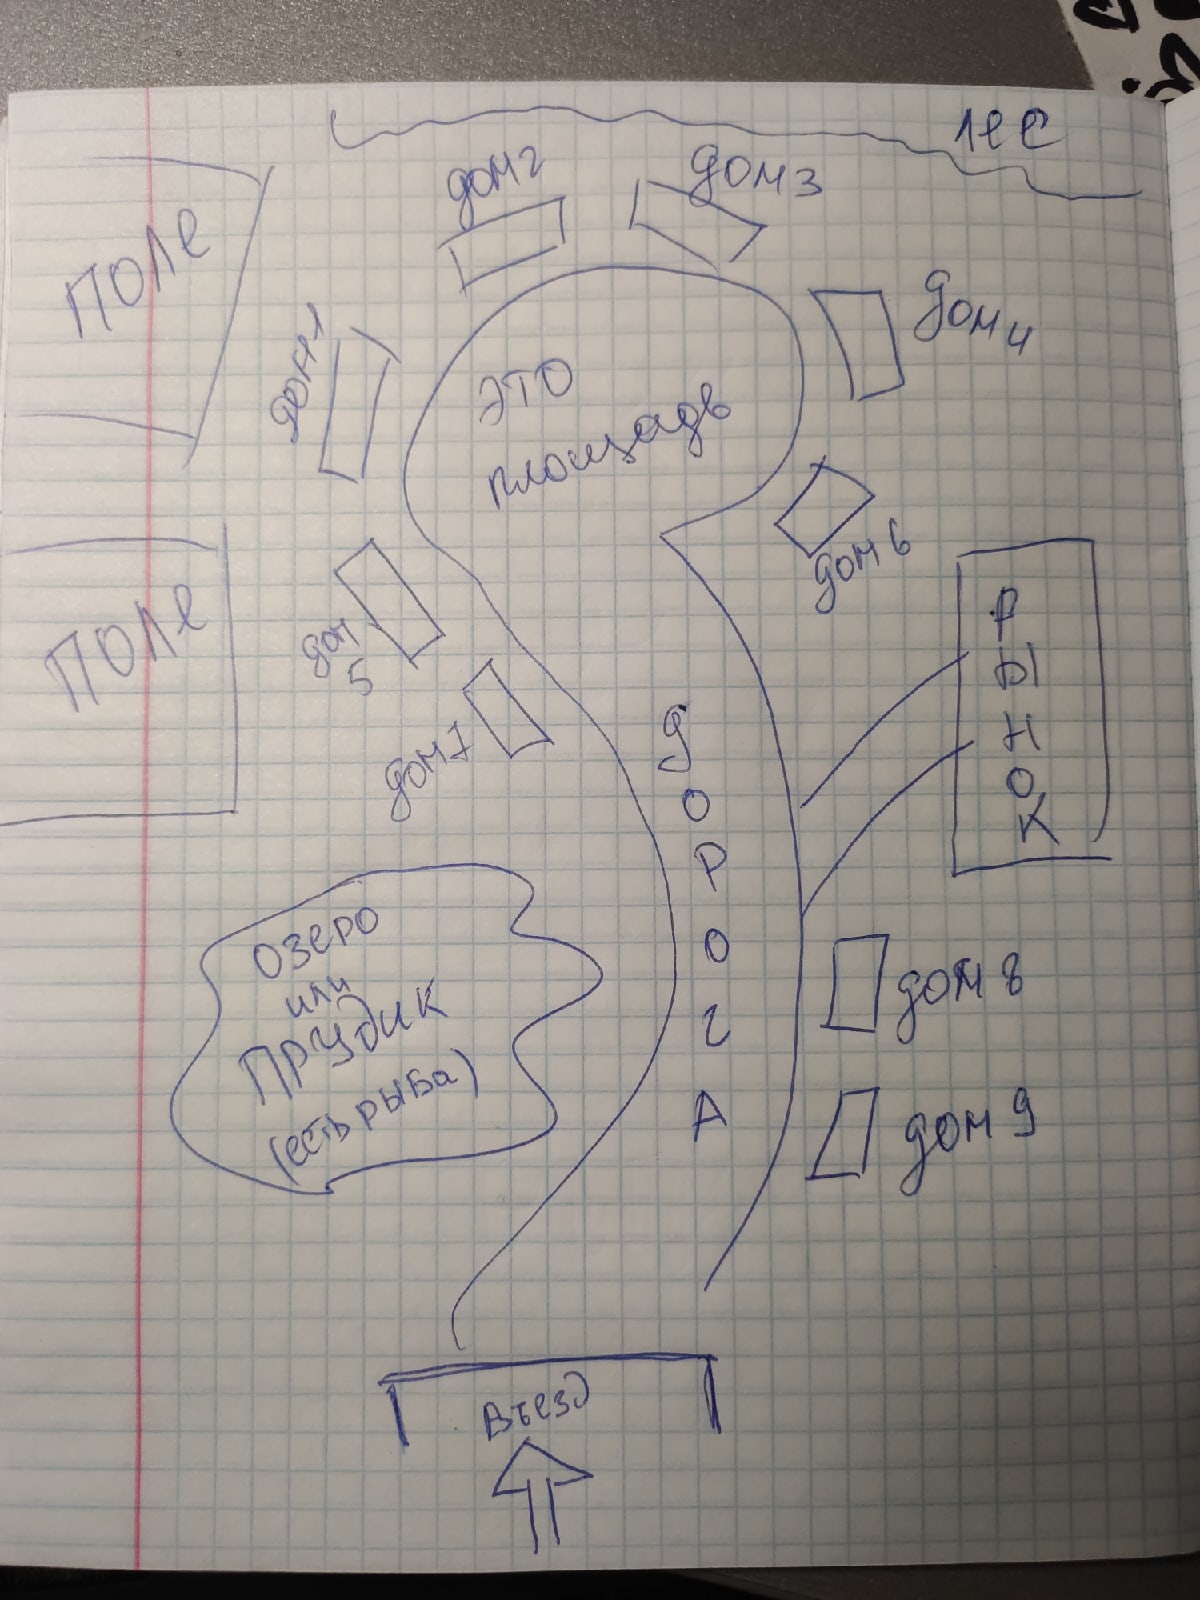 лес
дом 2
дом 3
Поле
дом 1
дом 4
это
площадь
дом 6
Поле
дом
5
дом 7
Рынок
дорога
Озеро
или
Прудик
(есть рыба)
дом 8
дом 9
Въезд